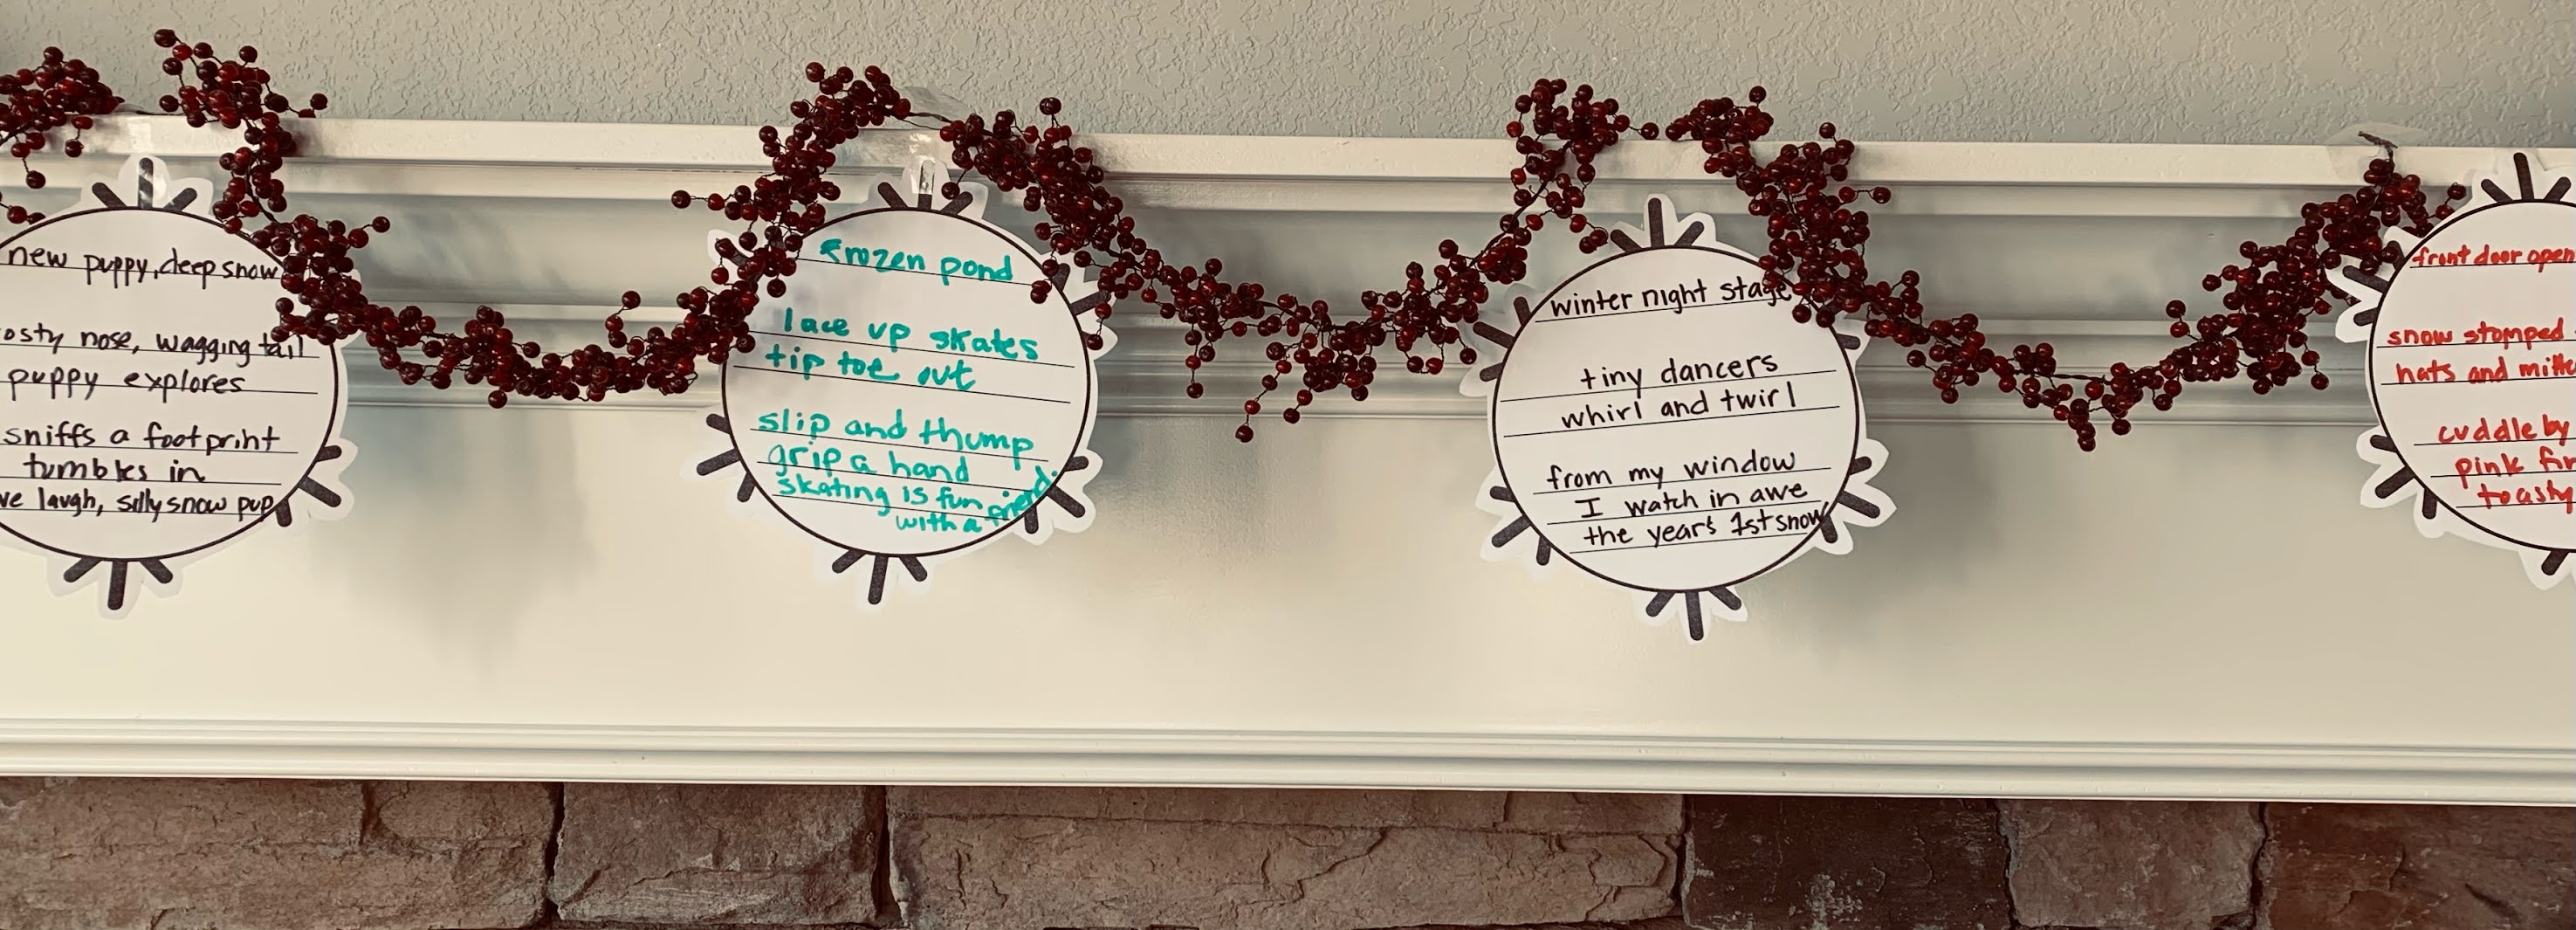 new puppy, deep snow
osty nose, wagging tail
puppy explores
sniffs a footprint
tumbles in
ve laugh, silly snow pup
frozen pond
lace up skates
tip toe out
slip and thump
grip a hand
skating is fun
with a friend.
winter night stage
tiny dancers
whirl and twirl
from my window
I watch in awe
the year's 1st snow
front door open
snow stomped
hats and mitt
cuddle by
pink fir
toasty